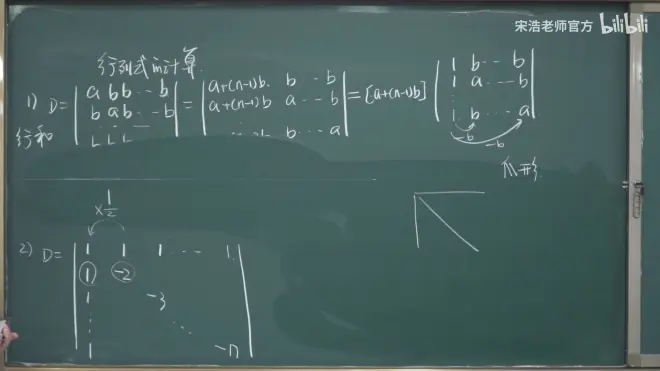 宋浩老师官方 bilibili
行列式的计算
1) D= | a b b ⋯ b | = | a+(n-1)b b ⋯ b | = [a+(n-1)b] | 1 b ⋯ b |
| b a b ⋯ b | | a+(n-1)b a ⋯ b | | 1 a ⋯ b |
行和
| b ⋯ a | | 1 b ⋯ a |
-b
-b
爪形
×1/2
2) D= | 1 1 1 ⋯ 1 |
1 -2
1 -3
⋮ ⋱
1 -n
=